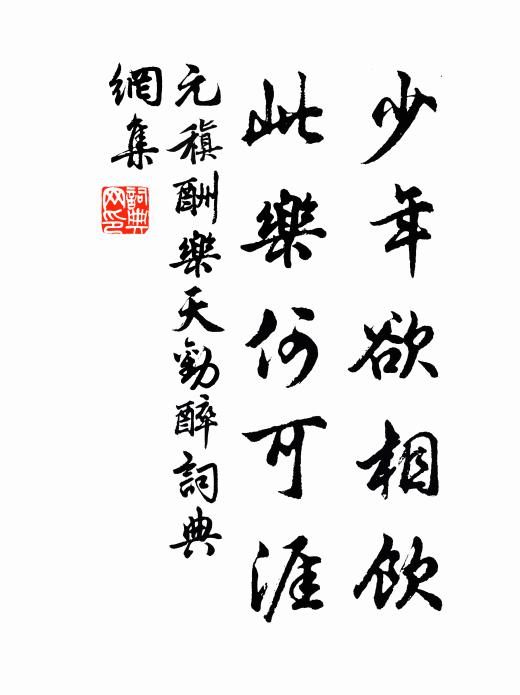 少年欲相飲
此樂何可涯
元稹酬樂天勸醉詞典
網集
詞典
网印